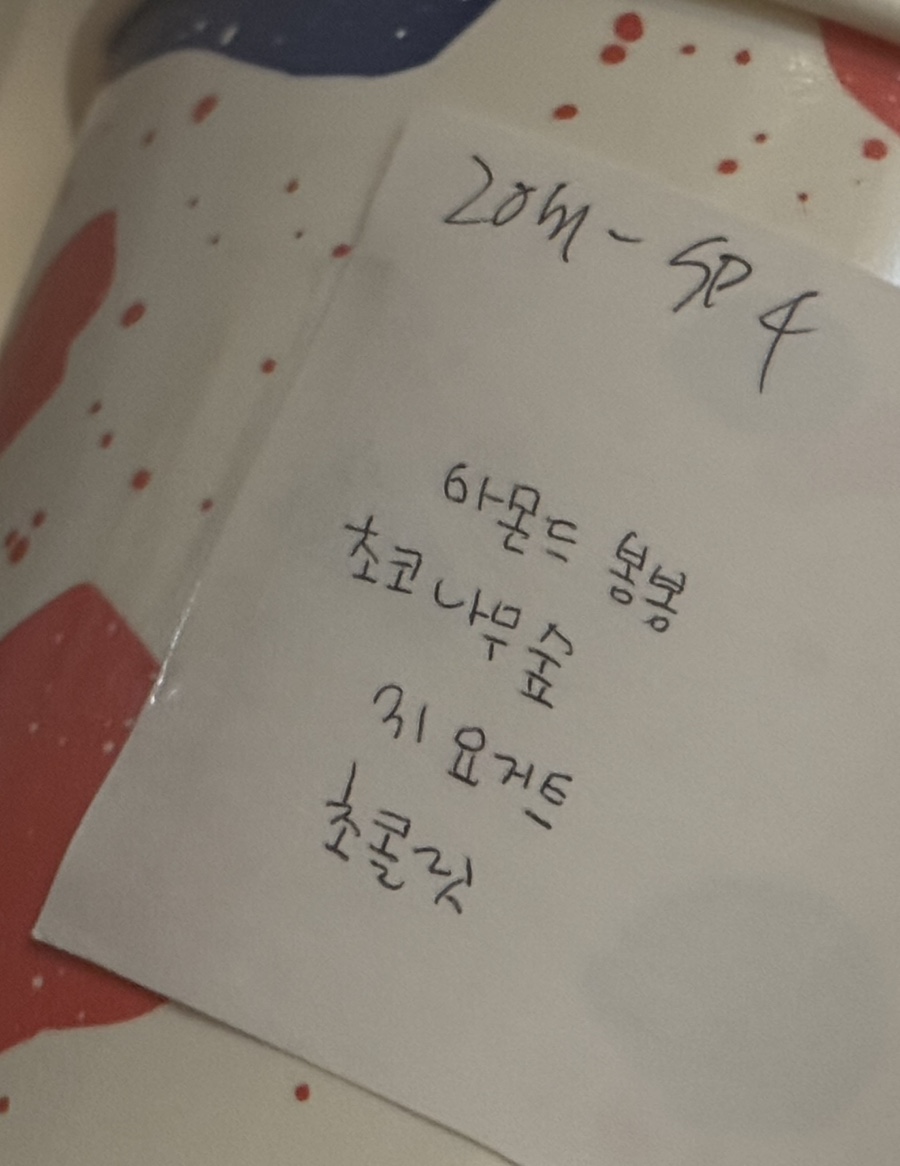 20m - SP 4
아몬드 봉봉
초코나무숲
리 요거트
초콜릿